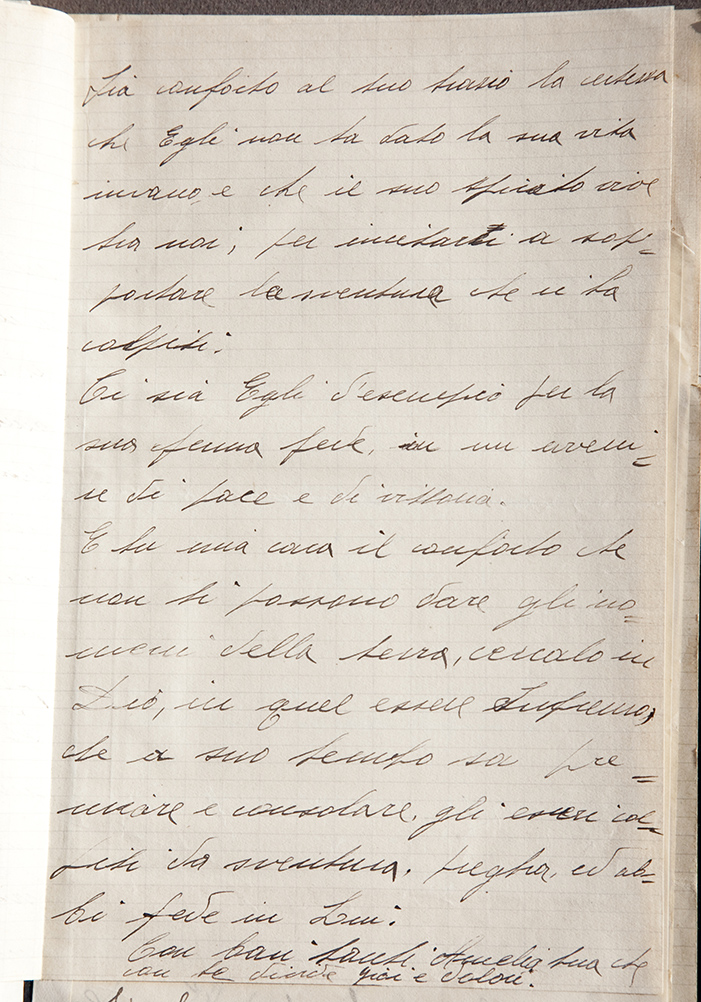 Sia conforto al tuo strazio la certezza
che Egli non ha dato la sua vita
invano, e che il suo spirito vive
tra noi, per incitarti a sop=
portare la sventura che ci ha
colpiti.
Ci sia Egli d'esempio per la
sua ferma fede, in un avveni=
re di pace e di vittoria.
E tu mia cara il conforto che
non ti possono dare gli uo=
mini della terra, cercalo in
Dio, in quel essere Supremo,
che a suo tempo sa pre=
miare e consolare, gli esseri col=
piti da sventura, pregha, ed ab=
bi fede in Lui.
Con baci tanti Amelia tua che
con te divide gioi e dolori.